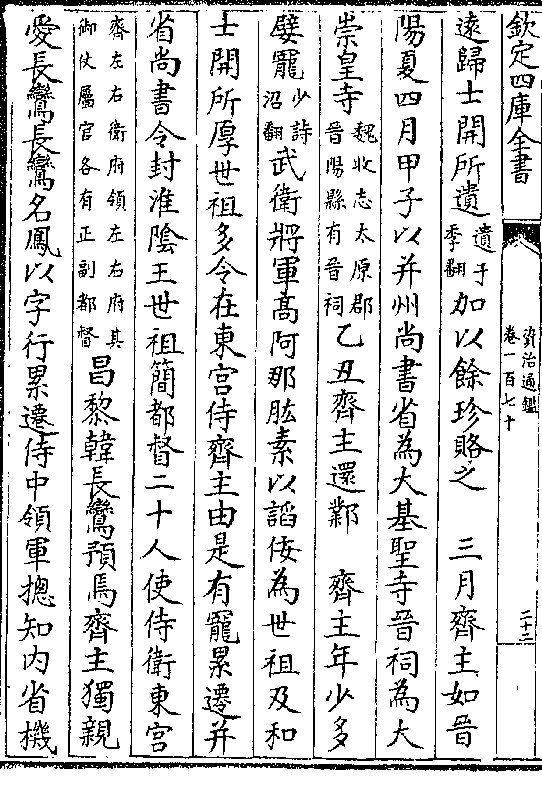 欽定四庫全書
資治通鑑
卷一百七十
二十三
遠歸士開所遺遺于季翻加以餘珍賂之　三月齊主如晉
陽夏四月甲子以并州尚書省為大基聖寺晉祠為大
崇皇寺魏收志太原郡晉陽縣有晉祠乙丑齊主還鄴　齊主年少多
嬖寵少詩沼翻武衛將軍高阿那肱素以諂佞為世祖及和
士開所厚世祖多令在東宮侍齊主由是有寵累遷并
省尚書令封淮陰王世祖簡都督二十人使侍衛東宮
齊左右衛府領左右府其御仗屬官各有正副都督昌黎韓長鸞預焉齊主獨親
愛長鸞長鸞名鳳以字行累遷侍中領軍摠知内省機